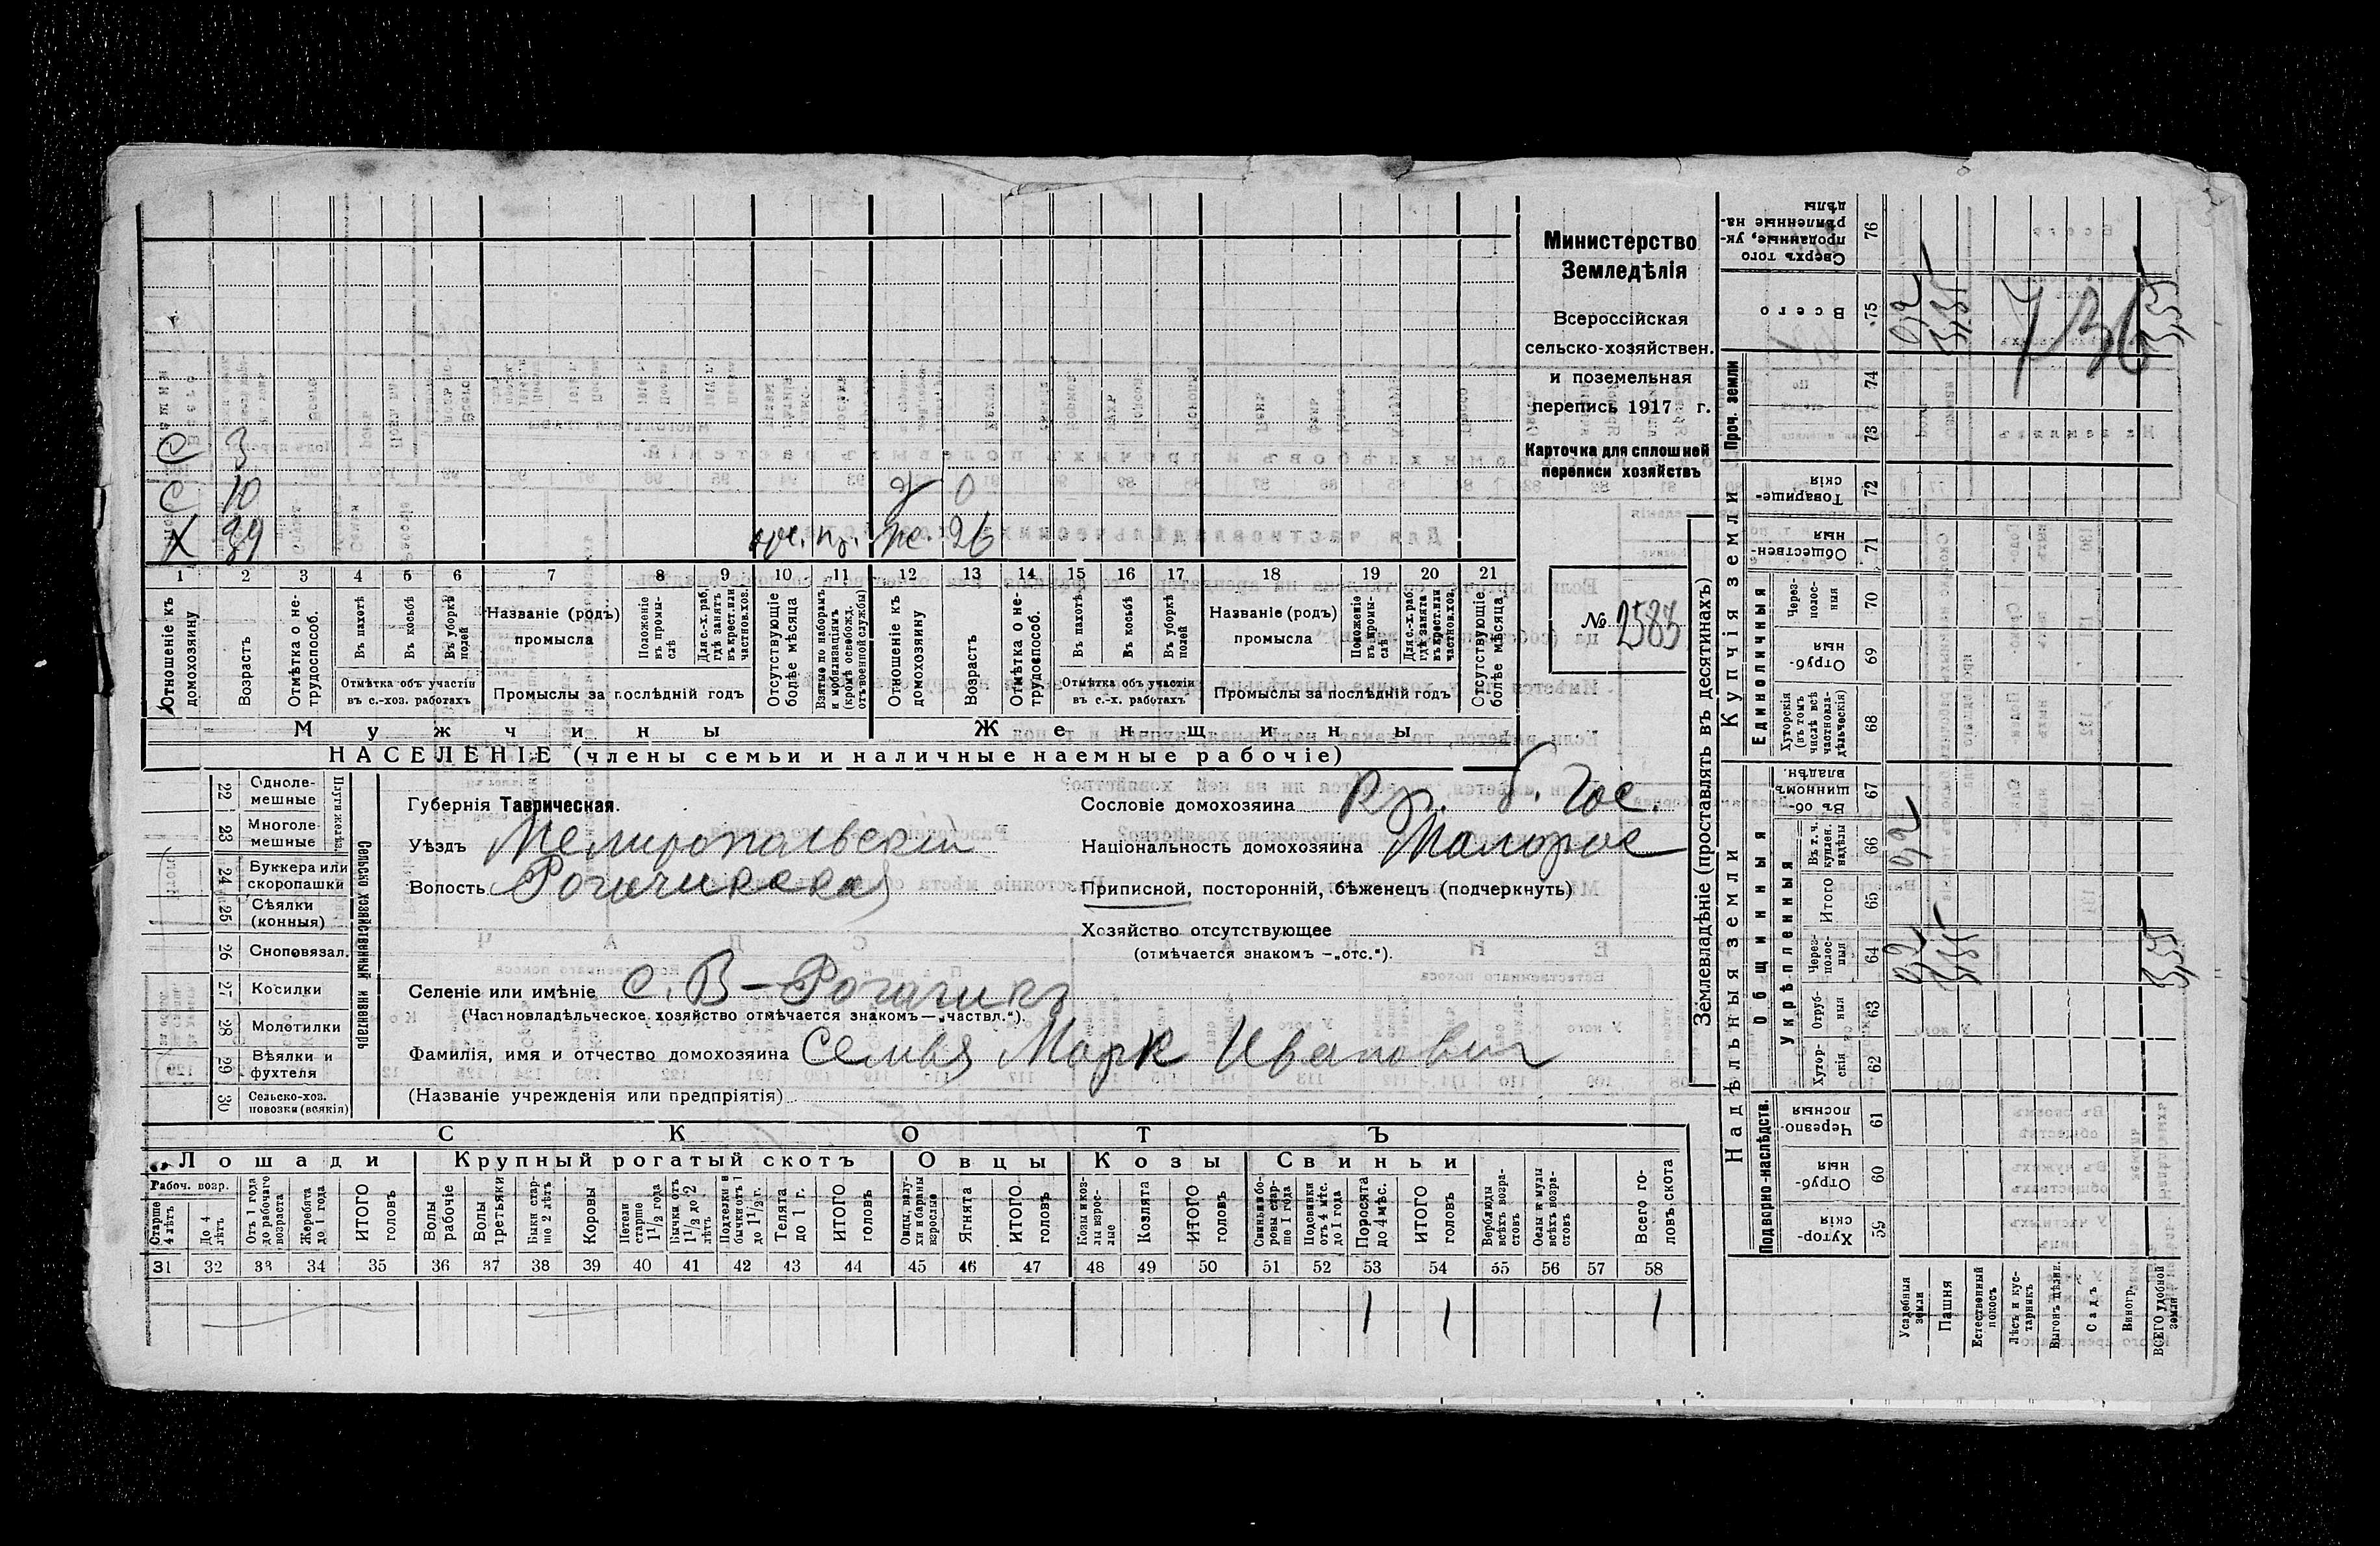 С 3
С 10 д 0
Х 39 ж. 26
1 2 3 4 5 6 7 8 9 10 11 12 13 14 15 16 17 18 19 20 21
Отношеніе къ домохозяину
Возрастъ
Отмѣтка о не-трудоспособ.
Въ пахотѣ
Въ косьбѣ
Въ уборкѣ полей
Отмѣтка объ участіи въ с.-хоз. работахъ
Названіе (родъ) промысла
Положеніе въ промы-слѣ
Для с.-х. раб. гдѣ занятъ въ крест. или частнов. хоз.
Промыслы за послѣдній годъ
Отсутствующіе болѣе мѣсяца
Взятые по наборамъ и мобилизаціямъ (кромѣ освобожд. отъ военной службы)
Отношеніе къ домохозяину
Возрастъ
Отмѣтка о не-трудоспособ.
Въ пахотѣ
Въ косьбѣ
Въ уборкѣ полей
Отмѣтка объ участіи въ с.-х. работахъ
Названіе (родъ) промысла
Положеніе въ промы-слѣ
Для с.-х. раб. гдѣ занята въ крест. или частнов. хоз.
Промыслы за послѣдній годъ
Отсутствующіе болѣе мѣсяца
Мужчины Женщины
НАСЕЛЕНІЕ (члены семьи и наличные наемные рабочіе)
Министерство
Земледѣлія
Всероссійская
сельско-хозяйствен.
и поземельная
перепись 1917 г.
Карточка для сплошной
переписи хозяйствъ
№ 2583
22 Одноле-мешные
23 Многоле-мешные
Плуги желѣз.
24 Буккера или скоропашки
25 Сѣялки (конныя)
26 Сноповязал.
27 Косилки
28 Молотилки
29 Вѣялки и фухтеля
30 Сельско-хоз. повозки (всякія)
Сельско хозяйственный инвентарь
Губернія Таврическая.
Уѣздъ Мелитопальвскій
Волость Рогачикская
Сословіе домохозяина кр. б. гос.
Національность домохозяина Малорос
Приписной, посторонній, бѣженецъ (подчеркнуть)
Хозяйство отсутствующее
(отмѣчается знакомъ —„отс.“).
Селеніе или имѣніе с. В-Рогачикъ
(Частновладѣльческое хозяйство отмѣчается знакомъ—„частвл.“).
Фамилія, имя и отчество домохозяина Семья Марк Иванович
(Названіе учрежденія или предпріятія)
СКОТЪ
Лошади Крупный рогатый скотъ Овцы Козы Свиньи
Рабоч. возр.
Старше 4 лѣтъ
До 4 лѣтъ
Отъ 1 года до рабочаго возраста
Жеребята до 1 года
ИТОГО головъ
Волы рабочіе
Волы третьяки
Быки стар-ше 2 лѣтъ
Коровы
Нетели старше 1 1/2 года
Бычки отъ 1 1/2 до 2 лѣтъ
Подтелки и бычки отъ 1 до 1 1/2 г.
Телята до 1 г.
ИТОГО головъ
Овцы, валу-хи и бараны взрослые
Ягнята
ИТОГО головъ
Козы и коз-лы взрос-лые
Козлята
ИТОГО головъ
Свиньи и бо-ровы стар-ше 1 года
Подсвинки отъ 4 мѣс. до 1 года
Поросята до 4 мѣс.
ИТОГО головъ
Верблюды всѣхъ возра-стовъ
Ослы и мулы всѣхъ возра-стовъ
Всего го-ловъ скота
31 32 33 34 35 36 37 38 39 40 41 42 43 44 45 46 47 48 49 50 51 52 53 54 55 56 57 58
1 1 1
Землевладѣніе (проставлять въ десятинахъ)
Надѣльныя земли Купчія земли Проч. земли
Подворно-наслѣдств.
Общинныя
Укрѣпленныя
Единоличныя
Хутор-скія 59
Отруб-ныя 60
Черезпо-лосныя 61
Хутор-скія 62
Отруб-ныя 63
Через-полос-ныя 64
Итого 65
Въ т. ч. куплен. надѣлы 66
Въ об-щинномъ владѣн. 67
Хуторскія (въ томъ числѣ всѣ частновла-дѣльческія) 68
Отруб-ныя 69
Через-полос-ныя 70
Обществен-ныя 71
Товарище-скія 72
73
74
Всего 75
Сверхъ того проданные, ук-рѣпленные на-дѣлы 76
Усадебныя земли
Пашня
Естественный покосъ
Лѣсъ и кус-тарникъ
Выгонъ цѣлин.
Садъ
Виногр.
ВСЕГО удобной земли